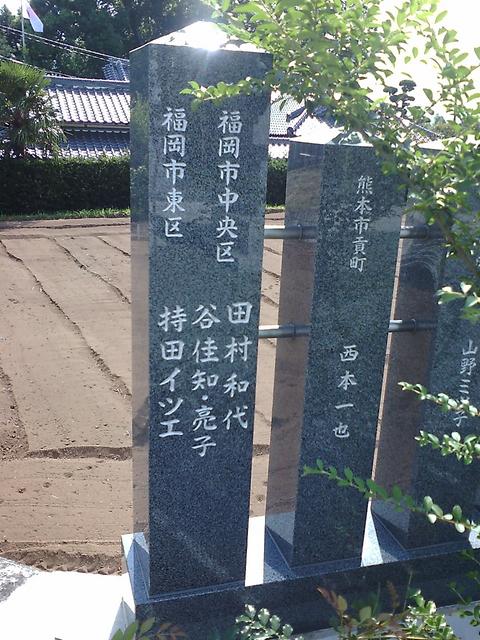 福岡市中央区
田村和代
谷佳知・亮子
福岡市東区
持田イツエ
熊本市貢町
西本一也
山野三